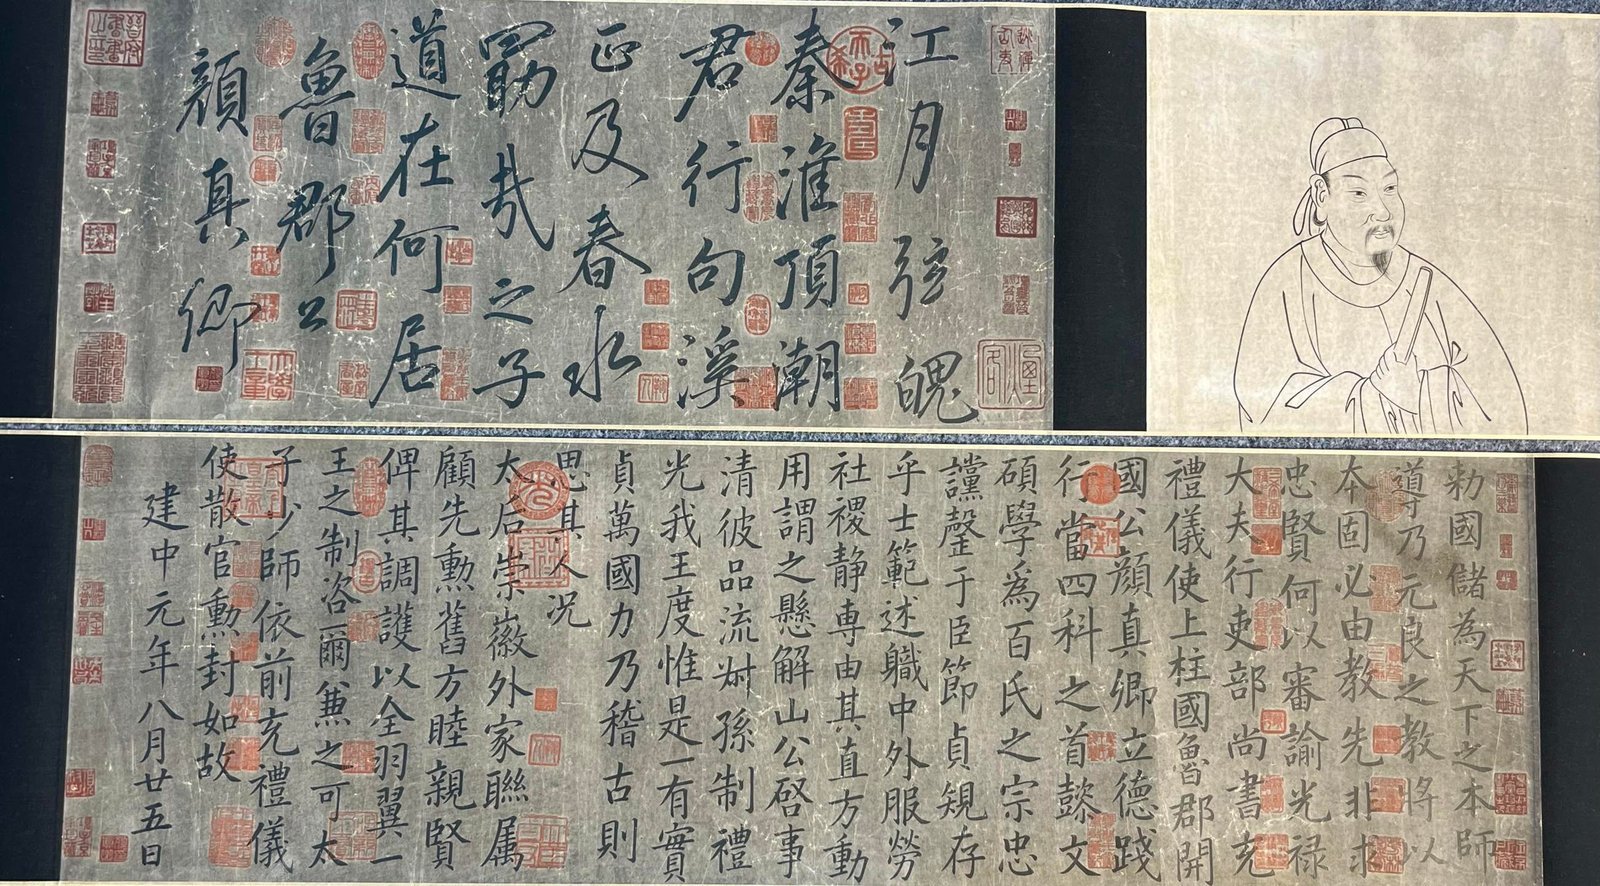 江月弦魄
秦淮頂潮
君行句溪
正及春水
勗哉之子
道在何居
魯郡公
顏真卿
勅國儲為天下之本師
導乃元良之教將以
本固必由教先非求
忠賢何以審諭光禄
大夫行吏部尚書充
禮儀使上柱國魯郡開
國公顔真卿立德踐
行當四科之首懿文
碩學為百氏之宗忠
讜罄于臣節貞規存
乎士範述職中外服勞
社稷静専由其直方動
用謂之懸解山公啓事
清彼品流叔孫制禮
光我王度惟是一有實
貞萬國力乃稽古則
思其人况
太后崇徽外家聯属
顧先勳舊方睦親賢
俾其調護以全羽翼一
王之制咨爾兼之可太
子少師依前充禮儀
使散官勳封如故
建中元年八月廿五日